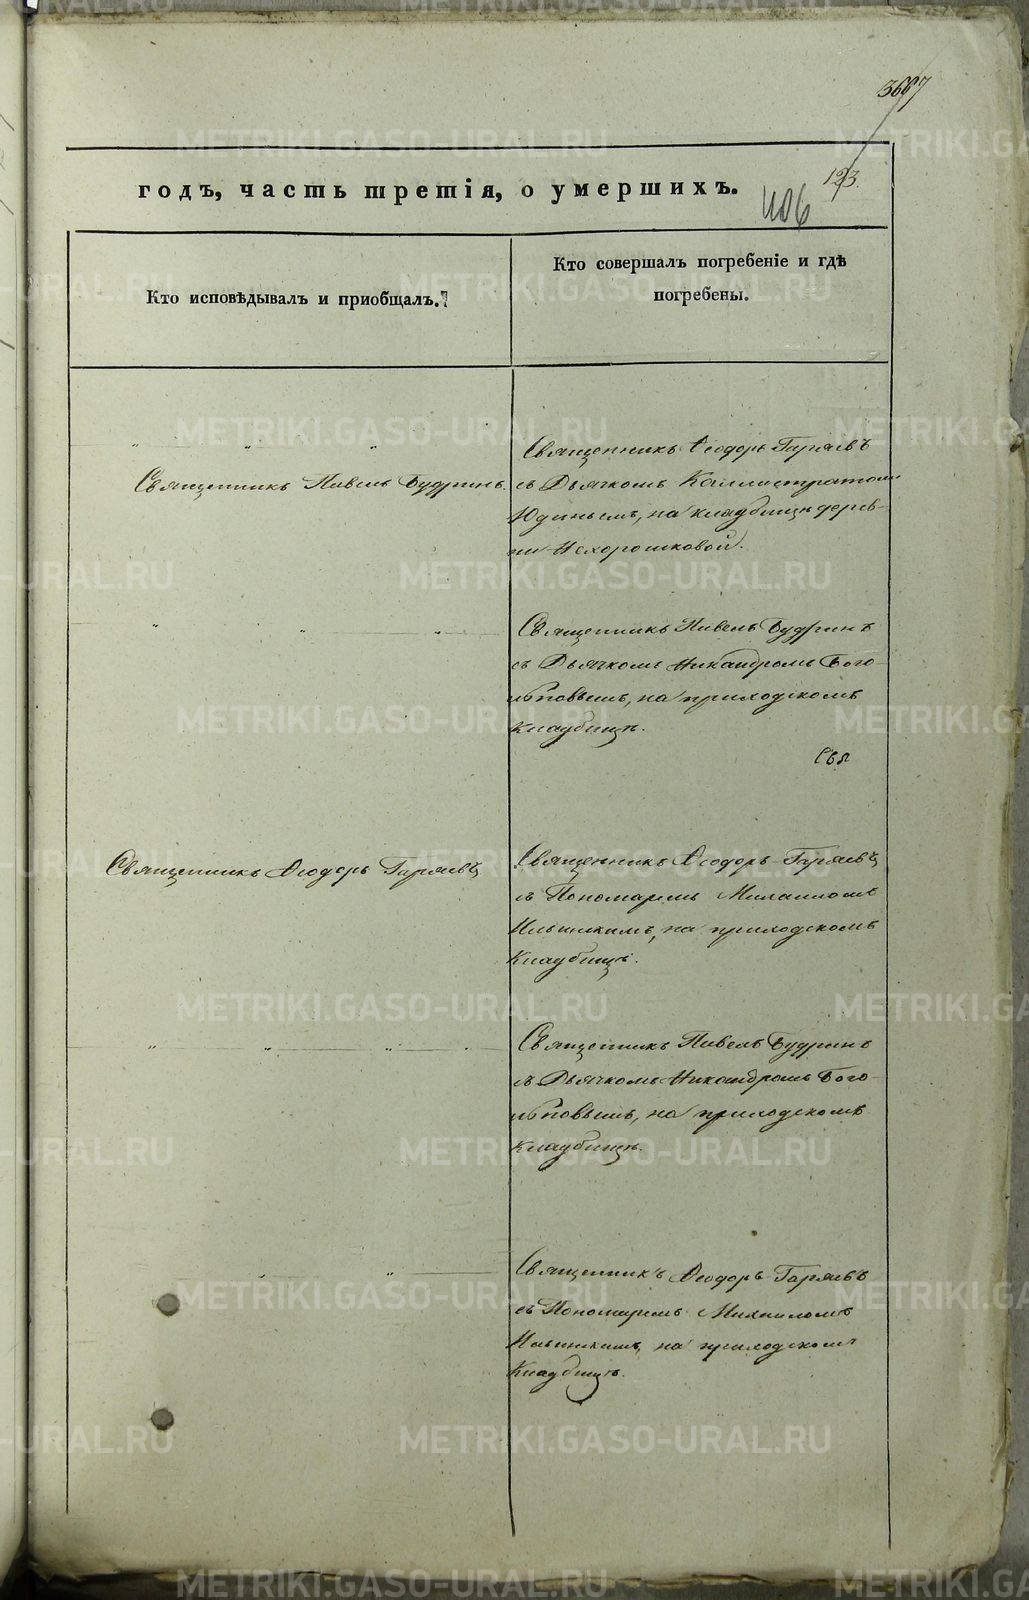 3667
123.
406
годъ, часть третія, о умершихъ.
Кто исповѣдывалъ и приобщалъ.
Кто совершалъ погребеніе и гдѣ
погребены.
Священникъ Павелъ Будринъ.
Священникъ Ѳеодоръ Гаряевъ
съ Дьячкомъ Каллистратомъ
Юдинымъ, на кладбищѣ дерев-
ни Нехорошковой.
Священникъ Павелъ Будринъ
съ Дьячкомъ Никандромъ Бого-
любовымъ, на приходскомъ
кладбищѣ.
Свя
Священникъ Ѳеодоръ Гаряевъ
Священникъ Ѳеодоръ Гаряевъ
съ Пономаремъ Михаиломъ
Ильинскимъ, на приходскомъ
Кладбищѣ.
Священникъ Павелъ Будринъ
съ Дьячкомъ Никандромъ Бого-
любовымъ, на приходскомъ
кладбищѣ.
Священникъ Ѳеодоръ Гаряевъ
съ Пономаремъ Михаиломъ
Ильинскимъ, на приходскомъ
Кладбищѣ.
METRIKI.GASO-URAL.RU